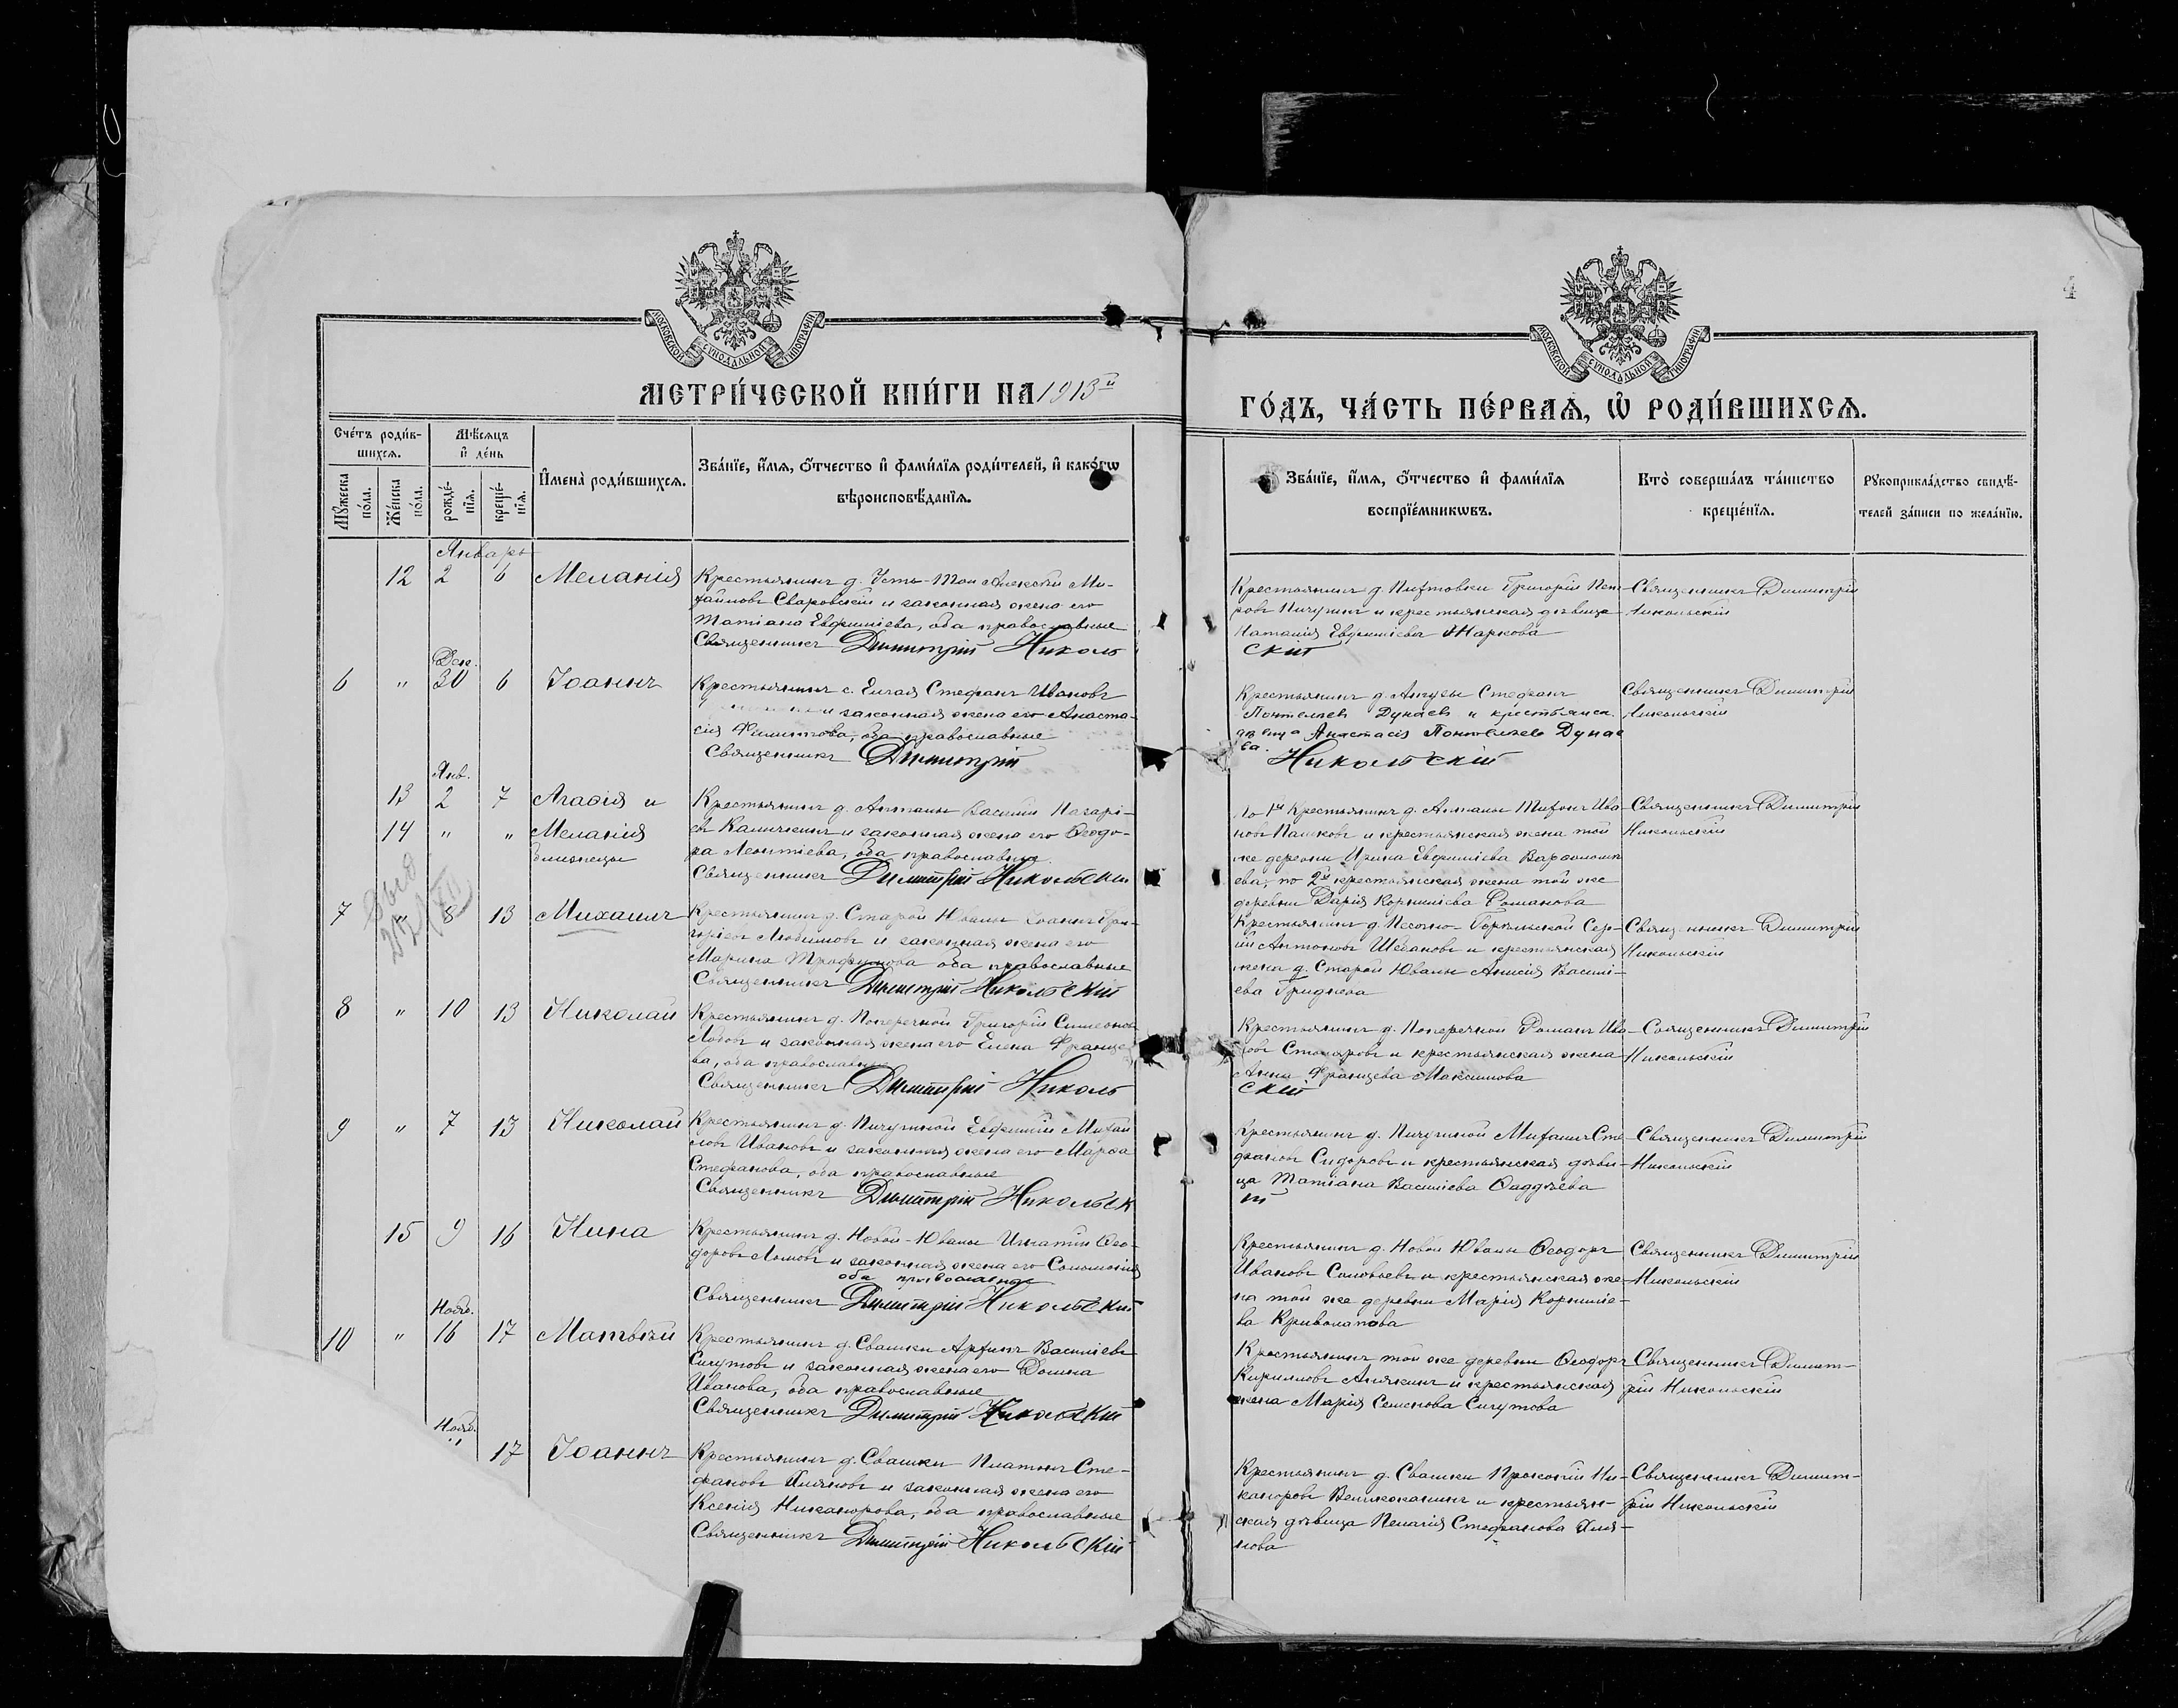 4
МОСКОВСКОЙ СѴНОДАЛЬНОЙ ТИПОГРАФІИ
МОСКОВСКОЙ СѴНОДАЛЬНОЙ ТИПОГРАФІИ
МЕТРИ́ЧЕСКОЙ КНИ́ГИ НА 1913й
ГО́ДЪ, ЧА́СТЬ ПЕ́РВАѦ, Ѡ҆ РОДИ́ВШИХСѦ.
Сче́тъ роди́в-
шихсѧ.
Мꙋ́жеска
по́ла.
Же́нска
по́ла.
Мѣ́сѧцъ
и҆ де́нь
рожде́-
нїѧ.
креще́-
нїѧ.
И҆мена̀ роди́вшихсѧ.
Зва́нїе, и҆́мѧ, ѻ҆́тчество и҆ фами́лїѧ роди́телей, и҆ како́гѡ
вѣроисповѣ́данїѧ.
Зва́нїе, и҆́мѧ, ѻ҆́тчество и҆ фами́лїѧ
воспрїе́мникѡвъ.
Кто̀ соверша́лъ та́инство
креще́нїѧ.
Рꙋкоприкла́дство свидѣ́-
телей за́писи по жела́нїю.
Январь
12 2 6 Меланія
Крестьянинъ д. Усть-Тои Алексѣй Ми-
хайловъ Сваровскій и законная жена его
Татіана Евфиміева, оба православные
Священникъ Димитрій Николь
Крестьянинъ д. Григорій Пет-
ровъ Пичугинъ и крестьянская дѣвица
Наталія Евфиміева Жаркова
скій
Священникъ Димитрій
Никольскій
Дек.
6 " 30 6 Іоаннъ
Крестьянинъ с. Елгая Стефанъ Ивановъ
и законная жена его Анаста-
сія Филиппова, оба православные
Священникъ Димитрій
Крестьянинъ д. Стефанъ
Дунаевъ и крестьянск.
дѣвица Анастасія Дунае
ва.
Никольскій
Священникъ Димитрій
Никольскій
Янв.
13 2 7 Агаѳія и
14 " " Меланія
близнецы
Крестьянинъ д. Василій Назарі-
евъ Калячкинъ и законная жена его Ѳеодо-
ра Леонтіева, оба православные
Священникъ Димитрій Никольскій
По 1й Крестьянинъ д. Тихонъ Ива-
новъ Пашковъ и крестьянская жена той
же деревни Ирина Евфиміева Варѳоломе
ева, по 2й крестьянская жена той же
деревни Дарія Корниліева Романова
Священникъ Димитрій
Никольскій
7 8 13 Михаилъ
Крестьянинъ д. Старой Ювалы Іоаннъ Гри-
горіевъ Любимовъ и законная жена его
Марина Трофимова оба православные
Священникъ Димитрій Никольскій
Крестьянинъ д. Песочно-Горѣльской Сер-
гій Антоновъ и крестьянская
жена д. Старой Ювалы Анисія Василі-
ева Гриднева
Священникъ Димитрій
Никольскій
8 " 10 13 Николай
Крестьянинъ д. Поперечной Григорій Симеоновъ
Лобовъ и законная жена его Елена Францe
ва, оба православные
Священникъ Димитрій Николь
Крестьянинъ д. Поперечной Романъ Ива-
новъ Столяровъ и крестьянская жена
Анна Францева Максимова
скій
Священникъ Димитрій
Никольскій
9 " 7 13 Николай
Крестьянинъ д. Пичугиной Евфимій Михай
ловъ Ивановъ и законная жена его Марѳа
Стефанова, оба православные
Священникъ Димитрій Никольск
Крестьянинъ д. Пичугиной Михаилъ Сте-
фановъ Сидоровъ и крестьянская дѣви-
ца Татіана Василіева Ѳаддѣева
ій
Священникъ Димитрій
Никольскій
15 9 16 Нина
Крестьянинъ д. Новой-Ювалы Игнатій Ѳео-
доровъ Ломовъ и законная жена его Соломонія
оба православные
Священникъ Димитрій Никольскій
Крестьянинъ д. Новой Ювалы Ѳеодоръ
Ивановъ Соловьевъ и крестьянская же-
на той же деревни Марія Корниліе-
ва Криволапова
Священникъ Димитрій
Никольскій
Нояб.
10 " 16 17 Матвѣй
Крестьянинъ д. Свашки Василіевъ
Сичутовъ и законная жена его Домна
Иванова, оба православные
Священникъ Димитрій Никольскій
Крестьянинъ той же деревни Ѳеодоръ
Кирилловъ и крестьянская
жена Марія Семенова Сичутова
Священникъ Димит-
рій Никольскій
Нояб.
" 17 Іоаннъ
Крестьянинъ д. Свашки Платонъ Сте-
фановъ и законная жена его
Ксенія Никанорова, оба православные
Священникъ Димитрій Никольскій
Крестьянинъ д. Свашки Прокопій Ни-
каноровъ Великжанинъ и крестьян-
ская дѣвица Пелагія Стефанова
Священникъ Димит-
рій Никольскій